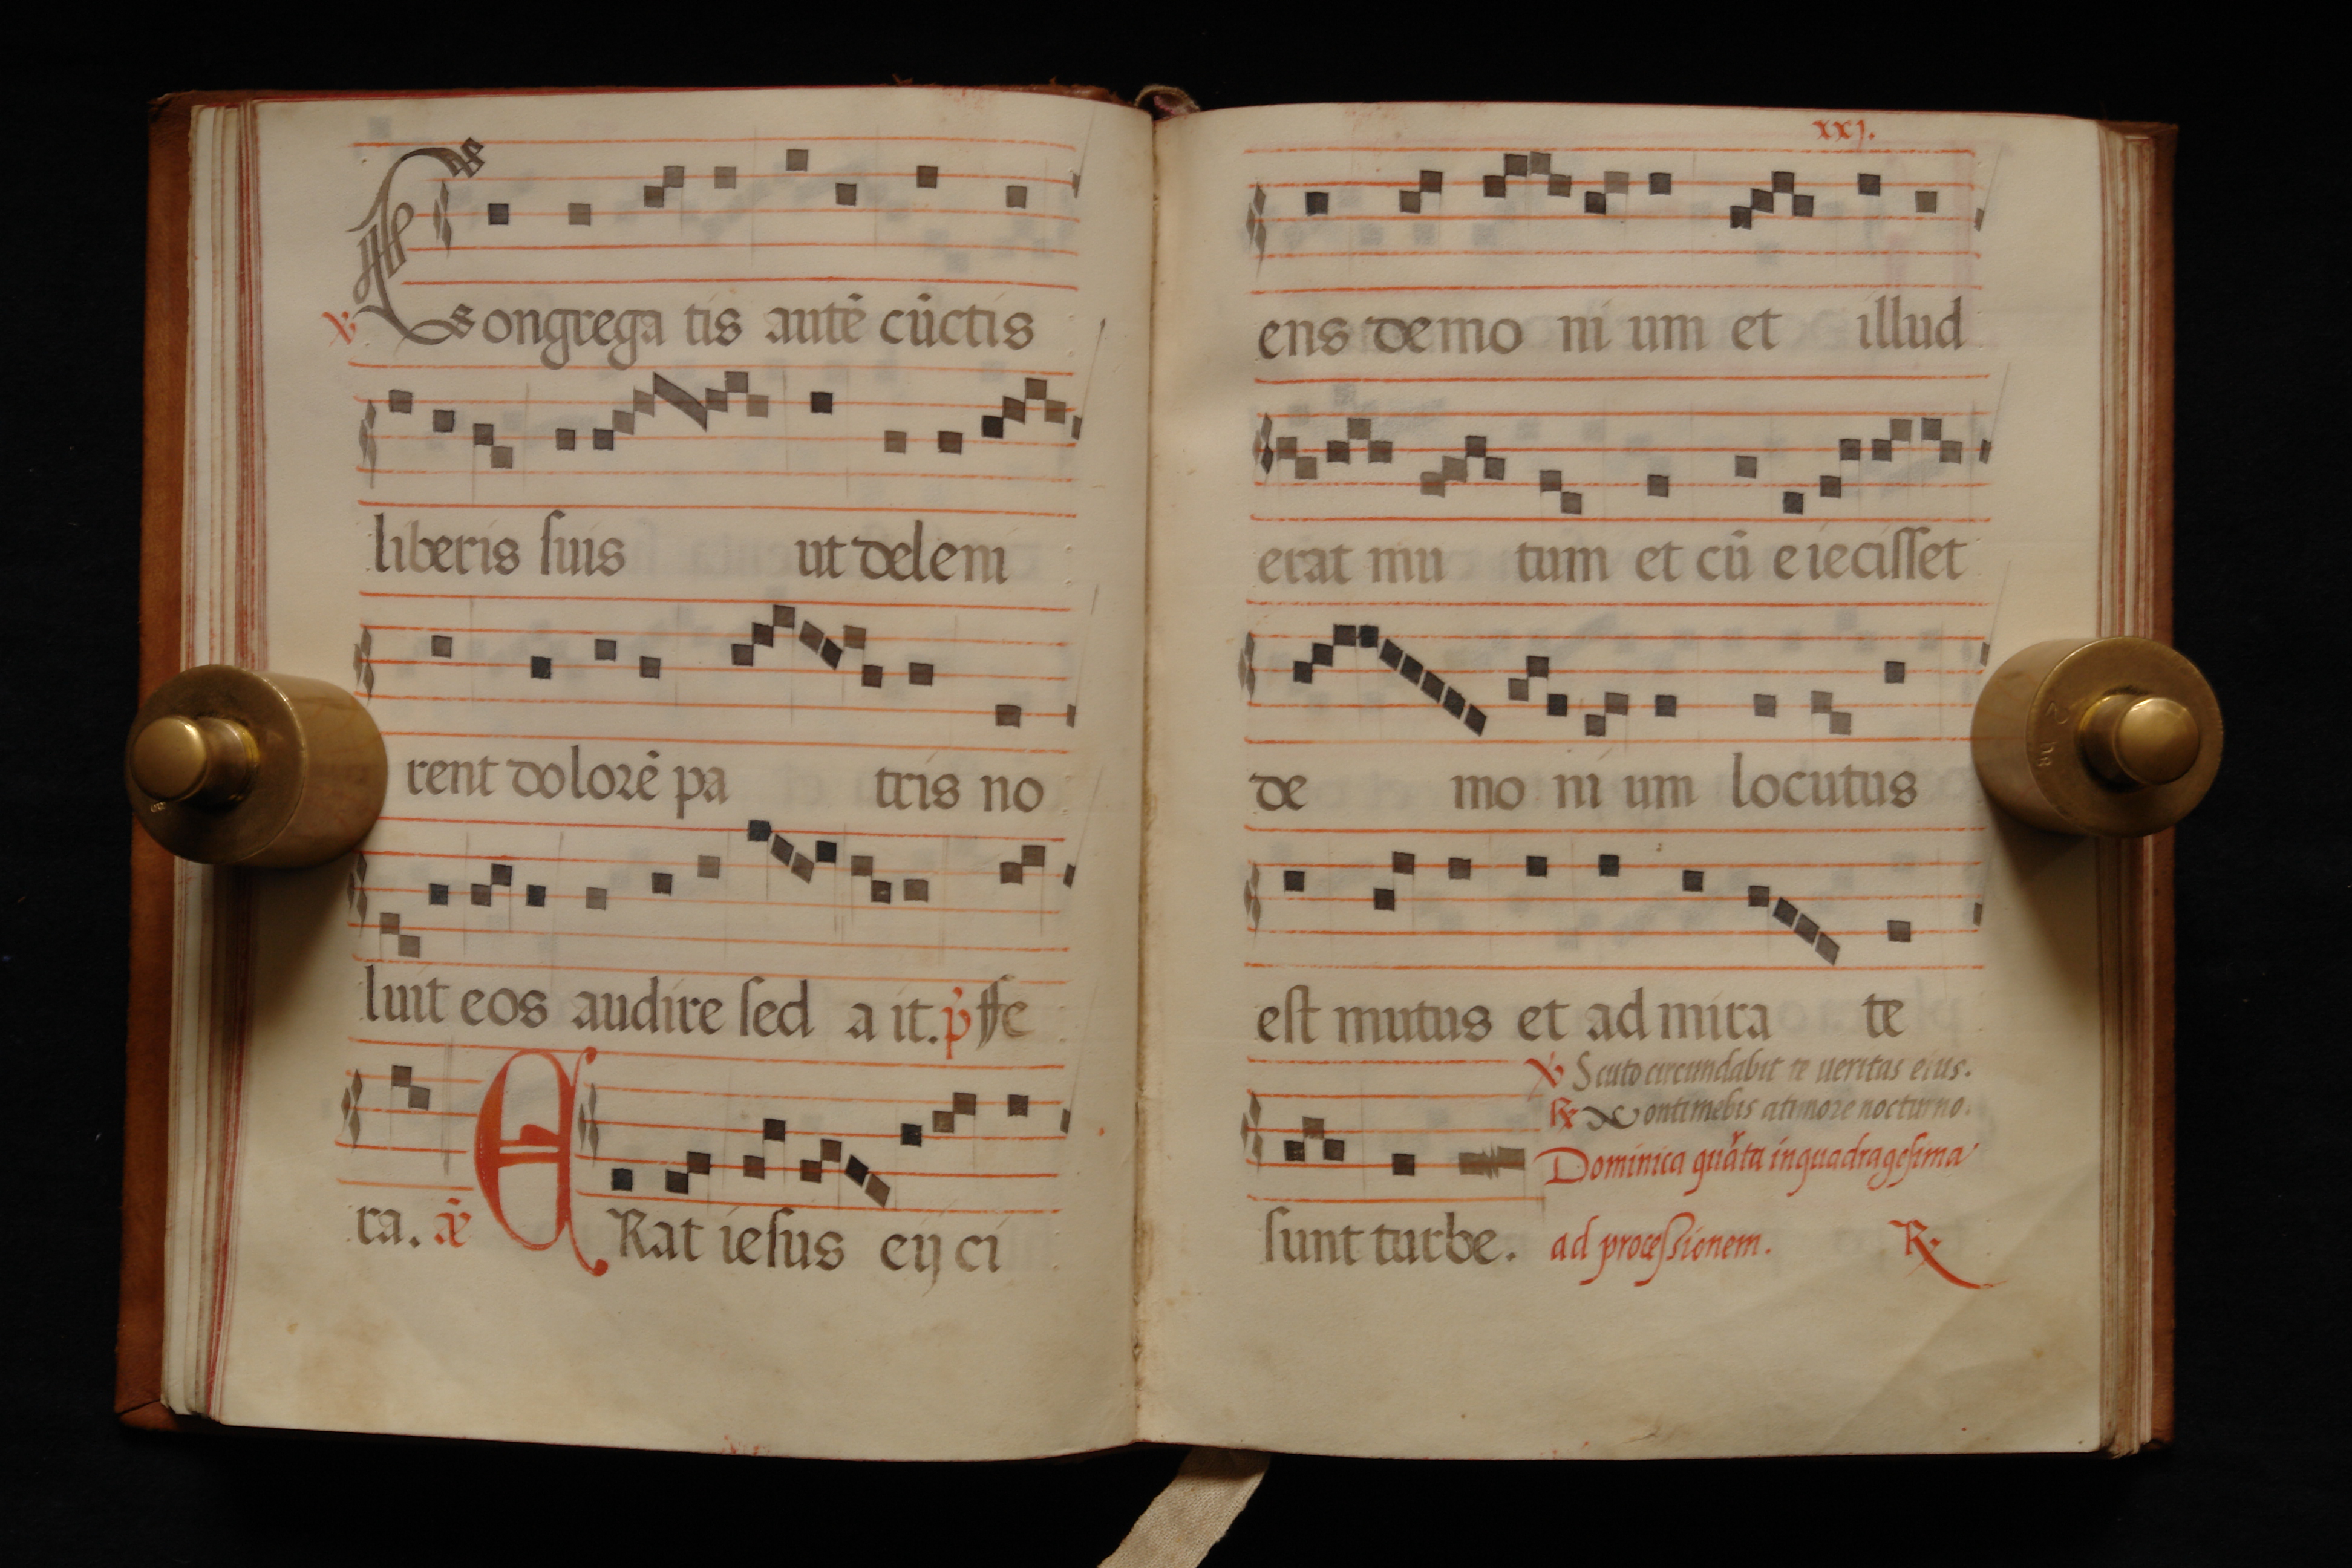 ℣ Congrega tis autē cūctis
liberis suis ut deleni
rent dolorē pa tris no
luit eos audire sed a it. p̄ ffe
ra. añ ERat iesus eijci
xxj.
ens demo ni um et illud
erat mu tum et cū eiecisset
de mo ni um locutus
est mutus et ad mira te
℣ Scuto circundabit te ueritas eius.
℟ Non timebis a timore nocturno.
Dominica quarta in quadragesima
sunt turbe. ad processionem. ℟